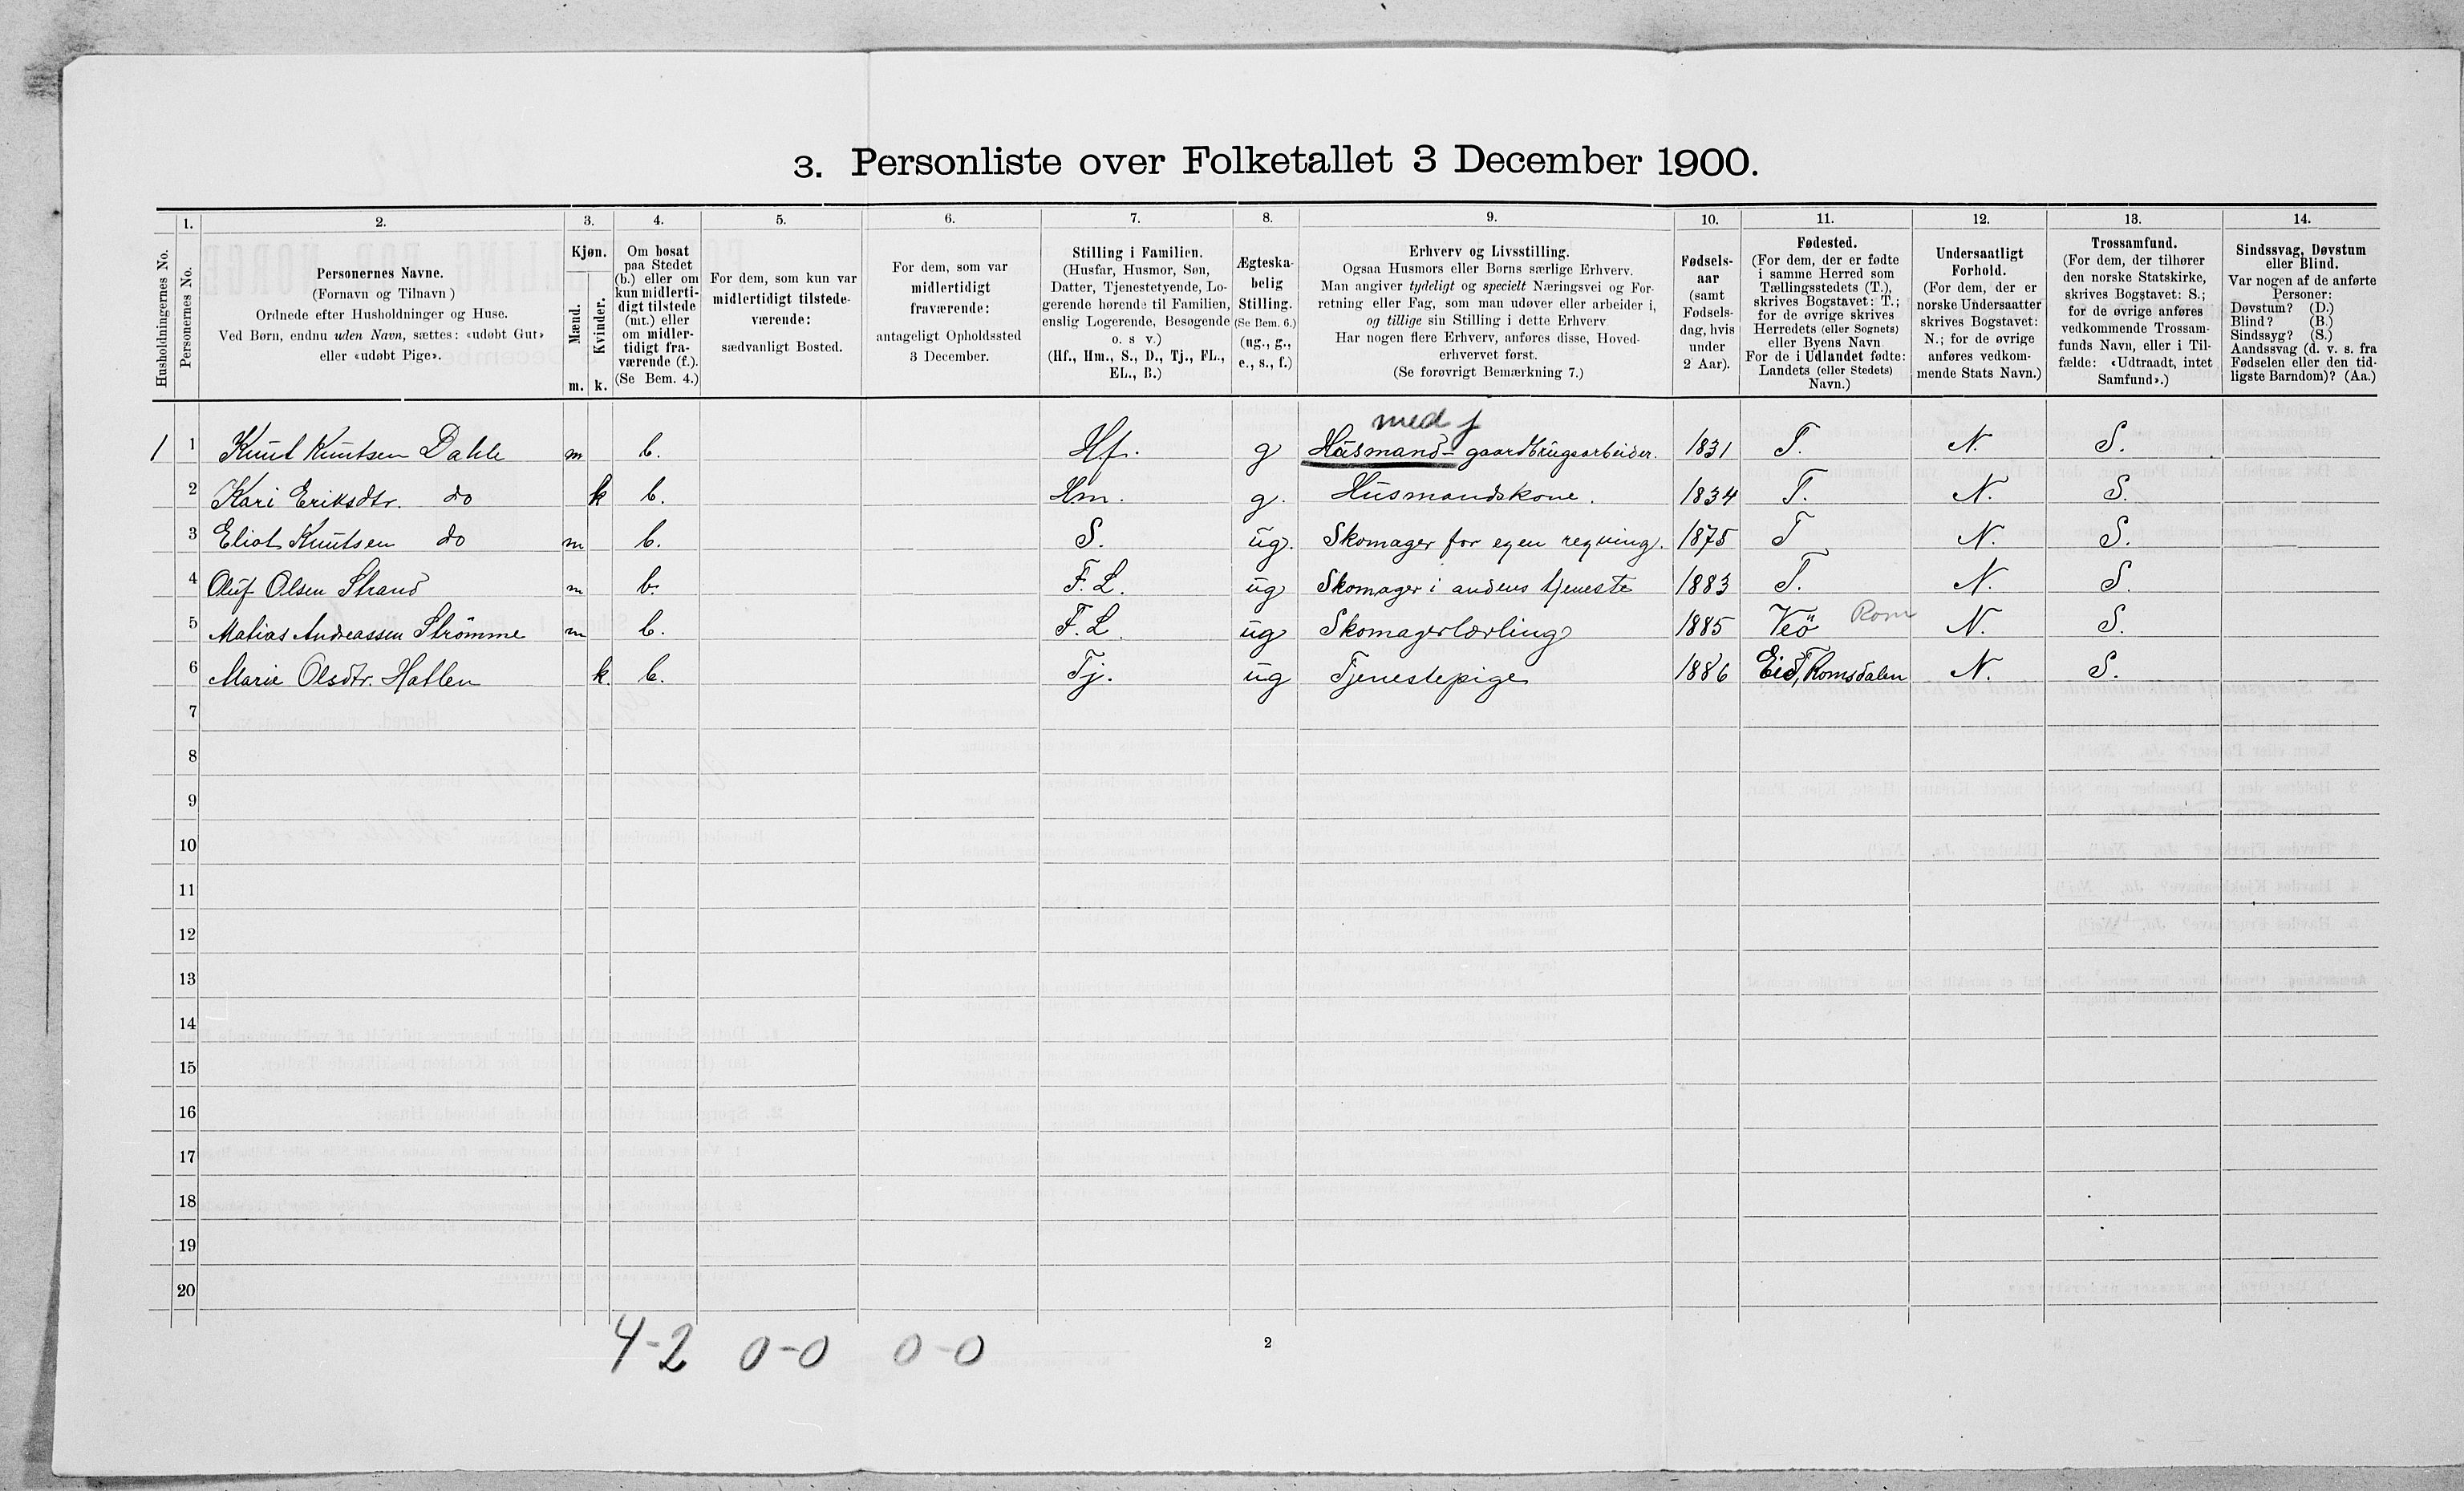 3. Personliste over Folketallet 3 December 1900.
1. 2. 3. 4. 5. 6. 7. 8. 9. 10. 11. 12. 13. 14.
Husholdningernes No.
Personernes No.
Personernes Navne.
(Fornavn og Tilnavn)
Ordnede efter Husholdninger og Huse.
Ved Børn, endnu uden Navn, sættes: «udøbt Gut»
eller «udøbt Pige».
Kjøn.
Mænd.
Kvinder.
m. k.
Om bosat
paa Stedet
(b.) eller om
kun midlerti-
digt tilstede
(mt.) eller
om midler-
tidigt fra-
værende (f.).
(Se Bem. 4.)
For dem, som kun var
midlertidigt tilstede-
værende:
sædvanligt Bosted.
For dem, som var
midlertidigt
fraværende:
antageligt Opholdssted
3 December.
Stilling i Familien.
(Husfar, Husmor, Søn,
Datter, Tjenestetyende, Lo-
gerende hørende til Familien,
enslig Logerende, Besøgende
o. s v.)
(Hf., Hm., S., D., Tj., FL.,
EL., B.)
Ægteska-
belig
Stilling.
(Se Bem. 6.)
(ug., g.,
e., s., f.)
Erhverv og Livsstilling.
Ogsaa Husmors eller Børns særlige Erhverv.
Man angiver tydeligt og specielt Næringsvei og For-
retning eller Fag, som man udøver eller arbeider i,
og tillige sin Stilling i dette Erhverv
Har nogen flere Erhverv, anføres disse, Hoved-
erhvervet først.
(Se forøvrigt Bemærkning 7.)
Fødsels-
aar
(samt
Fødsels-
dag, hvis
under
2 Aar).
Fødested.
(For dem, der er fødte
i samme Herred som
Tællingsstedets (T.),
skrives Bogstavet: T.;
for de øvrige skrives
Herredets (eller Sognets)
eller Byens Navn
For de i Udlandet fødte:
Landets (eller Stedets)
Navn.)
Undersaatligt
Forhold.
(For dem, der er
norske Undersaatter
skrives Bogstavet:
N.; for de øvrige
anføres vedkom-
mende Stats Navn.)
Trossamfund.
(For dem, der tilhører
den norske Statskirke,
skrives Bogstavet: S.;
for de øvrige anføres
vedkommende Trossam-
funds Navn, eller i Til-
fælde: «Udtraadt, intet
Samfund».)
Sindssvag, Døvstum
eller Blind.
Var nogen af de anførte
Personer:
Døvstum? (D.)
Blind? (B.)
Sindssyg? (S.)
Aandssvag (d. v. s. fra
Fødselen eller den tid-
ligste Barndom)? (Aa.)
med j
1 1 Knut Knutsen Dahle m b. Hf. g Husmand- gaardbrugsarbeider. 1831 T. N. S.
2 Kari Eriksdtr. do k b. Hm. g. Husmandskone. 1834 T. N. S.
3 Eliot Knutsen do m b. S. ug. Skomager for egen regning. 1875 T N. S.
4 Oluf Olsen Strand m b. F. L. ug Skomager i andens tjeneste 1883 T. N. S.
5 Matias Andreassen Strømme m b. F. L. ug Skomagerlærling 1885 Veö Rom N. S.
6 Marie Olsdtr. Hatlen k. b. Tj. ug Tjenestepige 1886 Eid, Romsdalen N. S.
7
8
9
10
11
12
13
14
15
16
17
18
19
20
4-2 0-0 0-0
2